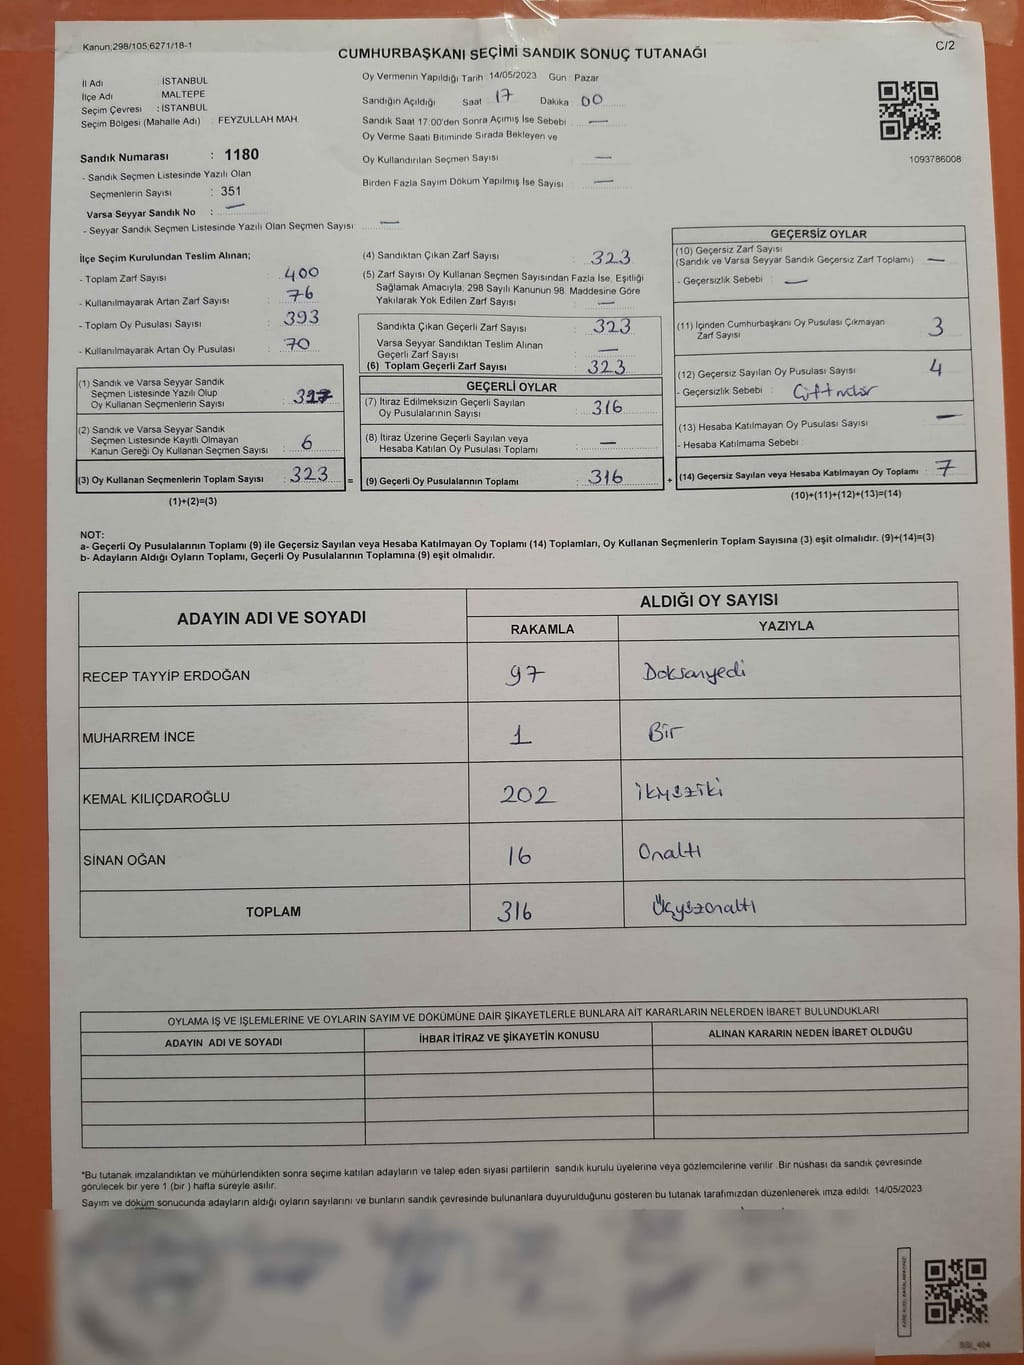 Kanun;298/105,6271/18-1
C/2
CUMHURBAŞKANI SEÇİMİ SANDIK SONUÇ TUTANAĞI
İl Adı : İSTANBUL
İlçe Adı MALTEPE
Seçim Çevresi : İSTANBUL
Seçim Bölgesi (Mahalle Adı) : FEYZULLAH MAH
Sandık Numarası : 1180
- Sandık Seçmen Listesinde Yazılı Olan
Seçmenlerin Sayısı : 351
Varsa Seyyar Sandık No : —
- Seyyar Sandık Seçmen Listesinde Yazılı Olan Seçmen Sayısı: —
Oy Vermenin Yapıldığı Tarih : 14/05/2023 Gün : Pazar
Sandığın Açıldığı Saat 17 Dakika 00
Sandık Saat 17:00'den Sonra Açımış İse Sebebi —
Oy Verme Saati Bitiminde Sırada Bekleyen ve
Oy Kullandırılan Seçmen Sayısı —
Birden Fazla Sayım Döküm Yapılmış İse Sayısı —
1093786008
İlçe Seçim Kurulundan Teslim Alınan;
- Toplam Zarf Sayısı : 400
- Kullanılmayarak Artan Zarf Sayısı : 76
- Toplam Oy Pusulası Sayısı : 393
- Kullanılmayarak Artan Oy Pusulası : 70
(1) Sandık ve Varsa Seyyar Sandık
Seçmen Listesinde Yazılı Olup
Oy Kullanan Seçmenlerin Sayısı : 317
(2) Sandık ve Varsa Seyyar Sandık
Seçmen Listesinde Kayıtlı Olmayan
Kanun Gereği Oy Kullanan Seçmen Sayısı : 6
(3) Oy Kullanan Seçmenlerin Toplam Sayısı : 323 =
(1)+(2)=(3)
(4) Sandıktan Çıkan Zarf Sayısı : 323
(5) Zarf Sayısı Oy Kullanan Seçmen Sayısından Fazla İse, Eşitliği
Sağlamak Amacıyla; 298 Sayılı Kanunun 98. Maddesine Göre
Yakılarak Yok Edilen Zarf Sayısı : —
Sandıkta Çıkan Geçerli Zarf Sayısı : 323
Varsa Seyyar Sandıktan Teslim Alınan
Geçerli Zarf Sayısı : —
(6) Toplam Geçerli Zarf Sayısı : 323
GEÇERLİ OYLAR
(7) İtiraz Edilmeksizin Geçerli Sayılan
Oy Pusulalarının Sayısı : 316
(8) İtiraz Üzerine Geçerli Sayılan veya
Hesaba Katılan Oy Pusulası Toplamı : —
(9) Geçerli Oy Pusulalarının Toplamı : 316 +
GEÇERSİZ OYLAR
(10) Geçersiz Zarf Sayısı
(Sandık ve Varsa Seyyar Sandık Geçersiz Zarf Toplamı) —
- Geçersizlik Sebebi : —
(11) İçinden Cumhurbaşkanı Oy Pusulası Çıkmayan
Zarf Sayısı 3
(12) Geçersiz Sayılan Oy Pusulası Sayısı 4
- Geçersizlik Sebebi :
(13) Hesaba Katılmayan Oy Pusulası Sayısı —
- Hesaba Katılmama Sebebi :
(14) Geçersiz Sayılan veya Hesaba Katılmayan Oy Toplamı : 7
(10)+(11)+(12)+(13)=(14)
NOT:
a- Geçerli Oy Pusulalarının Toplamı (9) ile Geçersiz Sayılan veya Hesaba Katılmayan Oy Toplamı (14) Toplamları, Oy Kullanan Seçmenlerin Toplam Sayısına (3) eşit olmalıdır. (9)+(14)=(3)
b- Adayların Aldığı Oyların Toplamı, Geçerli Oy Pusulalarının Toplamına (9) eşit olmalıdır.
ADAYIN ADI VE SOYADI ALDIĞI OY SAYISI
RAKAMLA YAZIYLA
RECEP TAYYİP ERDOĞAN 97 Doksanyedi
MUHARREM İNCE 1 Bir
KEMAL KILIÇDAROĞLU 202 ikiyüziki
SİNAN OĞAN 16 Onaltı
TOPLAM 316 Üçyüzonaltı
OYLAMA İŞ VE İŞLEMLERİNE VE OYLARIN SAYIM VE DÖKÜMÜNE DAİR ŞİKAYETLERLE BUNLARA AİT KARARLARIN NELERDEN İBARET BULUNDUKLARI
ADAYIN ADI VE SOYADI İHBAR İTİRAZ VE ŞİKAYETİN KONUSU ALINAN KARARIN NEDEN İBARET OLDUĞU
*Bu tutanak imzalandıktan ve mühürlendikten sonra seçime katılan adayların ve talep eden siyasi partilerin sandık kurulu üyelerine veya gözlemcilerine verilir. Bir nüshası da sandık çevresinde
görülecek bir yere 1 (bir ) hafta süreyle asılır.
Sayım ve döküm sonucunda adayların aldığı oyların sayılarını ve bunların sandık çevresinde bulunanlara duyurulduğunu gösteren bu tutanak tarafımızdan düzenlenerek imza edildi. 14/05/2023